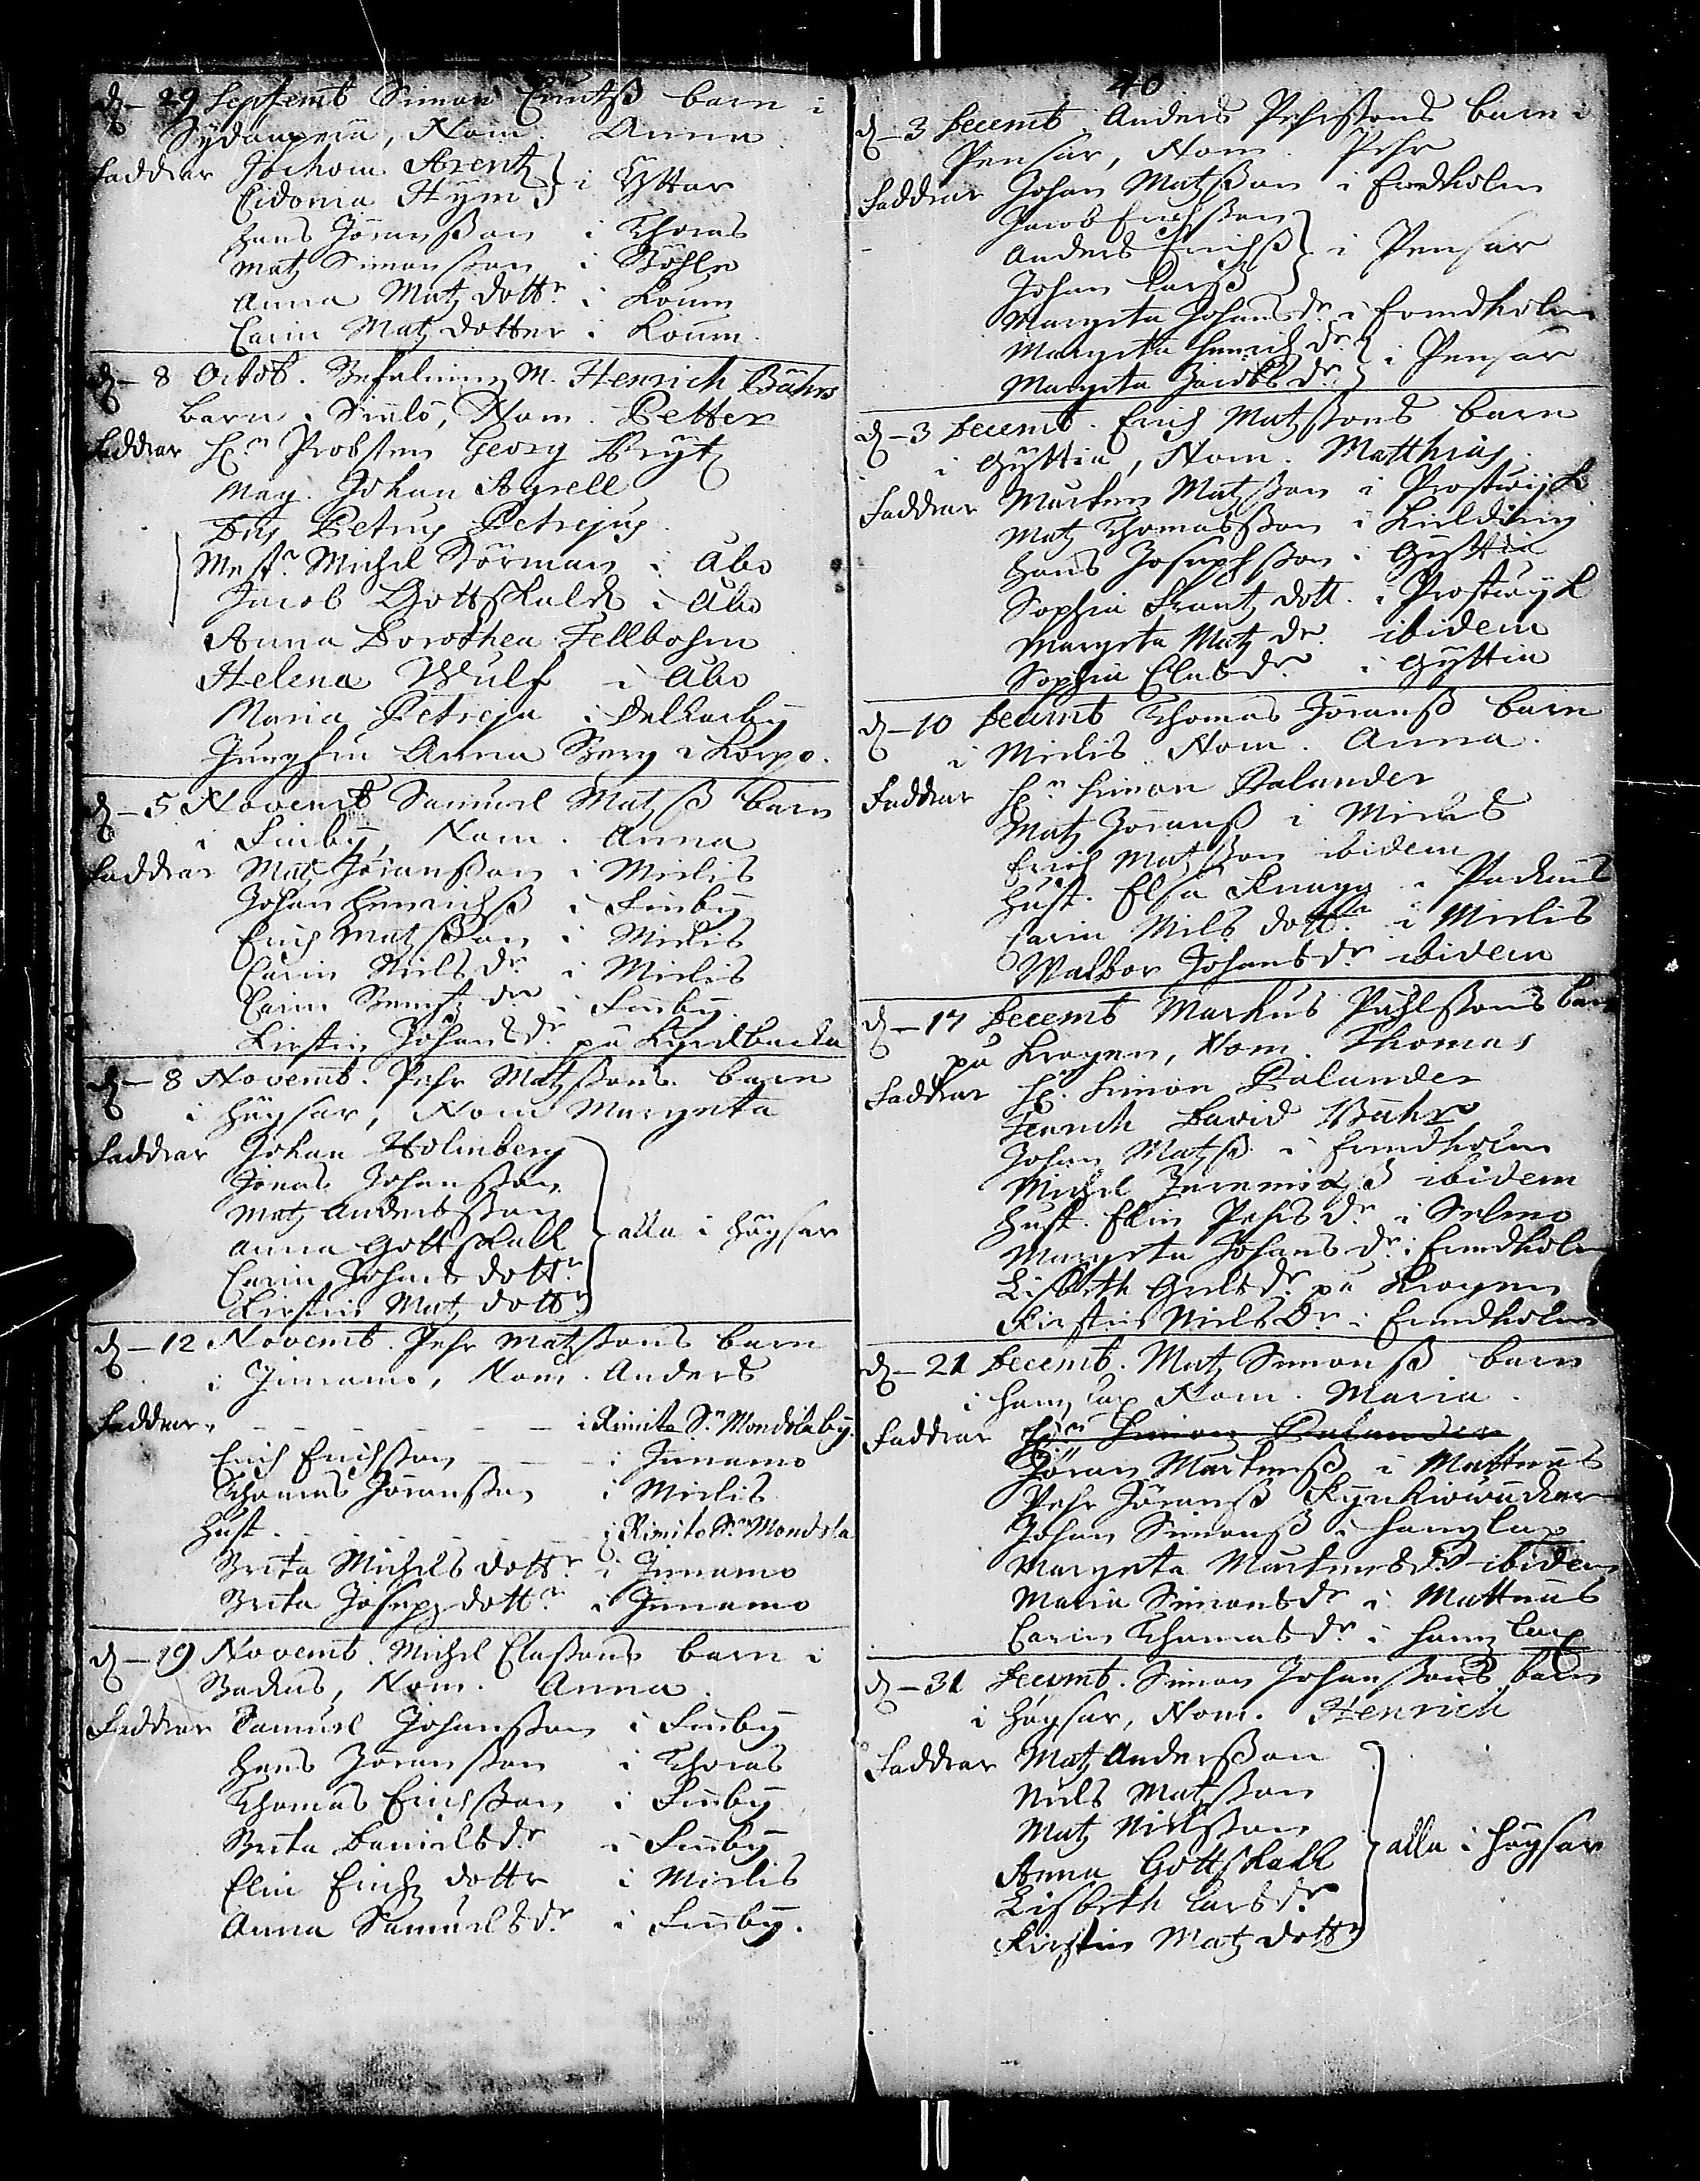 d. – 29 Septemb Simon barn i
Nom. Anna
Faddrar Jochom Arentz } i Yttar
Cidonia Hÿm
Hans Jöransson i Thoras
Matz Simonsson i Böhle
Anna Matz dottr. i Koum
Carin Matz dotter i Koum.
d. – 8 Octob. Befalnings M. Henrich Bährs
barn i Simlö, Nom. Petter
Faddrar Hr. Probsten Georg Prÿtz
Mag. Johan Agrell
Dns Petrus Petrejus
Mestr. Michel Störman i Åbo
Jacob Gottskalck i Åbo
Anna Dorothea Fellbohm
Helena Wulf i Åbo
Maria Petreja i Dalkarby
Jungfru Anna Berg i Korpo.
d. – 5 Novemb Samuel Matzß barn
i Finbÿ, Nom. Anna
Faddrar Matz Jöransson i Mielis
Johan Henrichß i Finbÿ
Erich Matzsson i Mielis
Carin Nielsdr. i Mielis
Carin dr i Finbÿ.
Kirstin Johansdr. på
d. – 8 Novemb. Pehr Matzssons barn
i Högsar, Nom Margreta
Faddrar Johan Holmberg
Jonas Johansson
Matz Andersson
Anna Gottskalk } alla i Högsar
Carin Johans dottr.
Kirstin Matz dottr.
d. – 12 Novemb. Pehr Matzssons barn
i Innamo, Nom. Anders
Faddrar. – – – – – – i Rimito Sn Mondola bÿ.
Erich Erichsson – – – i Innamo
Thomas Jöransson i Mielis
Hust. – – – – – i Rimito Sn Mondola
Brita Michels dottr i Innamo
Brita Joseps dottr i Innamo
d. – 19 Novemb. Michel Classons barn i
Backas, Nom. Anna.
Faddrar Samuel Johansson i Finbÿ
Hans Jöransson i Thoras
Thomas Erichsson i Finbÿ
Brita Danielsdr i Finbÿ
Elin Erichz dottr i Mielis
Anna Samuelsdr i Finbÿ.
40
d. – 3 Decemb Anders Pehrssons barn i
Pensar, Nom. Pehr
Faddrar Johan Matzsson i Ernholm
Jacob Erichsson
Anders Erichß } i Pensar
Johan Larß
Margeta Johansdr. i Ernholm
Margeta Henrichdr. } i Pensar
Margeta Jacobsdr.
d. – 3 Decemb. Erich Matzssons barn
i Gÿttia, Nom. Matthias.
Faddrar Mårten Matzsson i Prostwijk
Matz Thomasson i Kirlding
Hans Josephsson i Gÿttia
Sophia Frantz dott. i Prostwÿk
Margeta Matz dr. ibidem
Sophia Clasdr i Gÿttia
d. – 10 Decemb Thomas Jöranß barn
i Mielis Nom. Anna.
Faddrar Hr Simon Palander
Matz Jöranß i Mielis
Erich Matzsson ibidem
Hust. Elsa Knagg i
Carin Nils dottr. i Mielis
Walbor Johansdr ibidem
d. – 17 Decemb Markus Påhlssons barn
på Krogen, Nom. Thomas
Faddrar Hr. Simon Palander
Fenrich David Bähr
Johan Matzß i Ernholm
Michel Jeremiæß ibidem
Hust. Elin Pehrsdr. i Selmo
Margeta Johansdr. i Ernholm
Lisbeth dr. på Krogen
Kirstin Nielsdr. i Ernholm
d. – 21 Decemb. Matz Simonß barn
i Hanglax Nom. Maria.
Faddrar Hr Simon Palander
Jöran Mårtenß i Mattnäs
Pehr Jöranß
Johan Simonß i Hanglax
Margeta Mårtensdr. ibidem
Maria Simonsdr i Mattnäs
Carin Thomasdr. i Hanglax
d. – 31 Decemb. Simon Johanssons barn
i Högsar, Nom. Henrich
Faddrar Matz Andersson
Niels Matzsson
Matz Nielsson
Anna Gottskalk } alla i Högsar
Lisbeth Larsdr
Kirstin Matz dottr